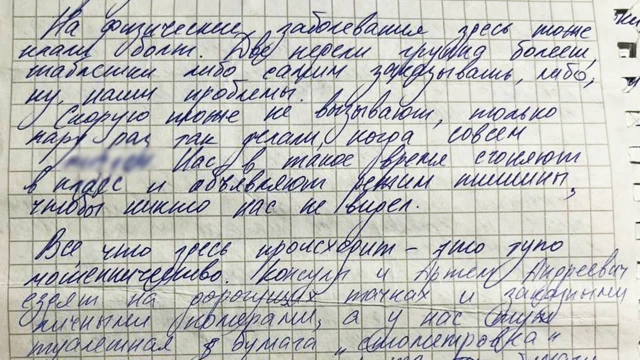 На физические заболевания здесь тоже
плали болт. Две недели группа болеет,
таблетки либо самим заказывать, либо,
ну, наши проблемы.
Скорую тоже не вызывают, только
пару раз так делали, когда совсем
Нас в такое время сгоняют
в класс и объявляют режим тишины,
чтобы никто нас не видел.
Все что здесь происходит - это тупо
мошенничество. Консулы и Артем Андреевич
ездят на дорогущих тачках с
личными поварами, а у нас
туалетная бумага "стометровка"